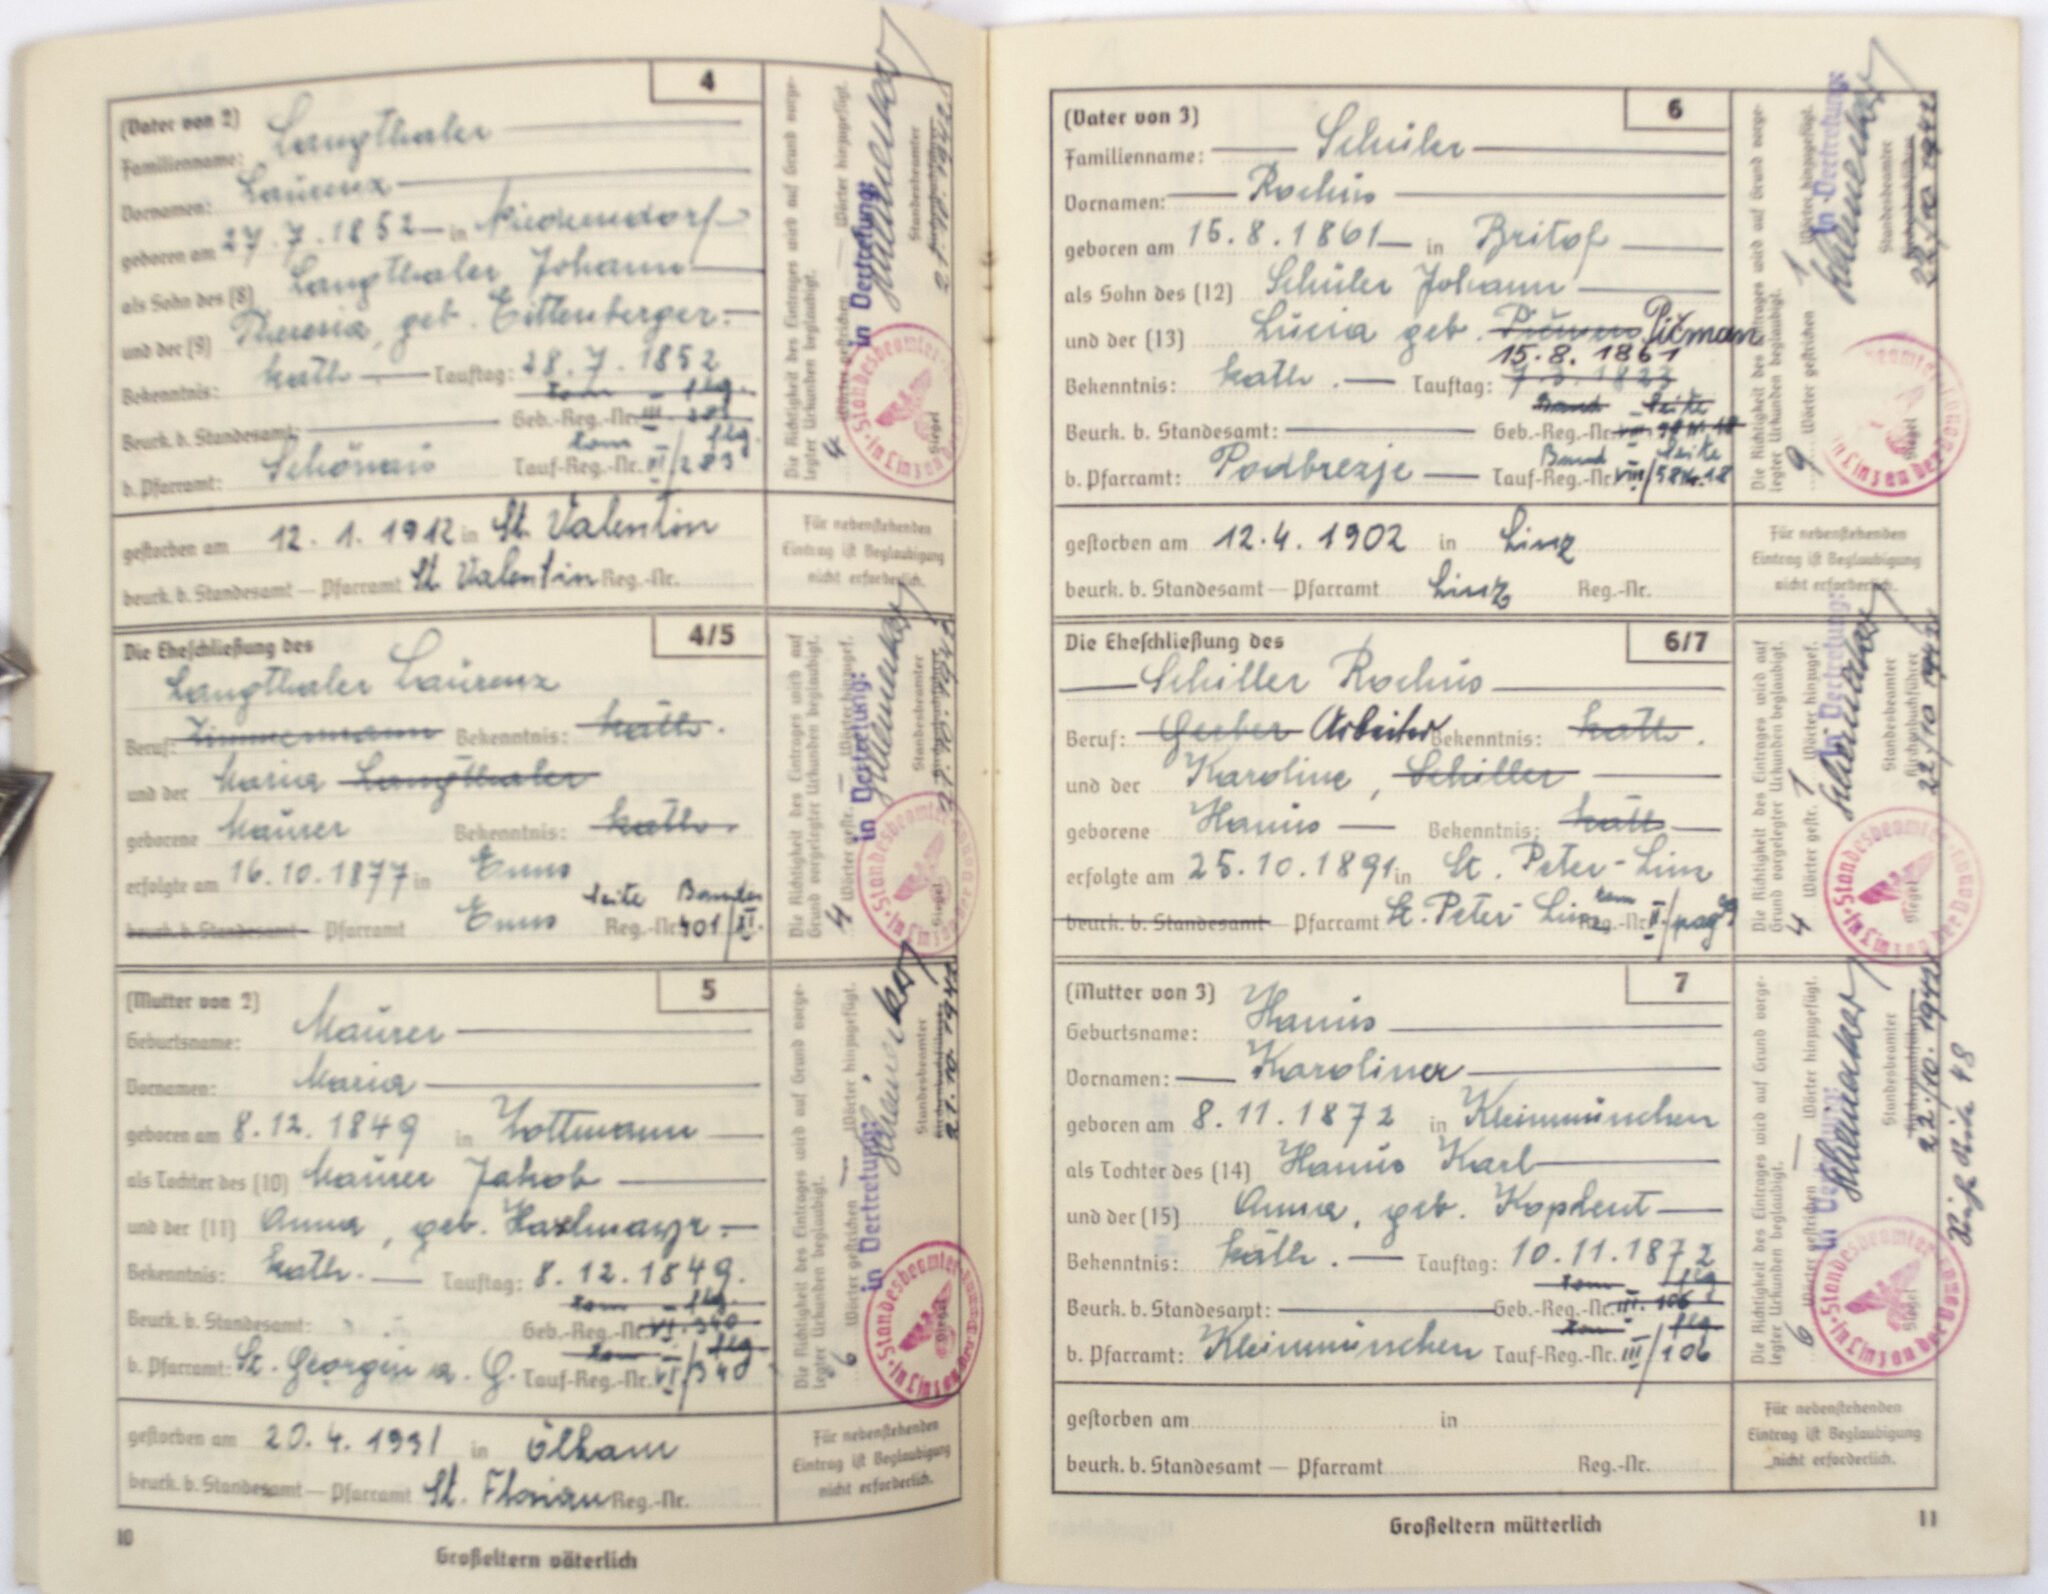 4
(Vater von 2)
Familienname: Langthaler
Vornamen: Laurenz
geboren am 27.7.1852 in Niederndorf
als Sohn des (8) Langthaler Johann
und der (9) Theresia, geb. Eittenberger.
Bekenntnis: kath. Tauftag: 28.7.1852
tom flg.
Beurk. b. Standesamt: Geb.-Reg.-Nr. III
tom flg.
b. Pfarramt: Schönau Tauf-Reg.-Nr. VI/283
gestorben am 12.1.1912 in St. Valentin
beurk. b. Standesamt — Pfarramt St. Valentin Reg.-Nr.
Die Richtigkeit des Eintrages wird auf Grund vorge-
legter Urkunden beglaubigt.
4 Wörter gestrichen — Wörter hinzugefügt.
in Vertretung:
Standesbeamter
21.10.1942
Siegel
Für nebenstehenden
Eintrag ist Beglaubigung
nicht erforderlich.
4/5
Die Eheschließung des
Langthaler Laurenz
Beruf: Zimmermann Bekenntnis: kath.
und der Maria Langthaler
geborene Maurer Bekenntnis: kath.
erfolgte am 16.10.1877 in Enns
Seite Band
beurk. b. Standesamt — Pfarramt Enns Reg.-Nr. 401/XI.
Die Richtigkeit des Eintrages wird auf
Grund vorgelegter Urkunden beglaubigt.
4 Wörter gestr. — Wörter hinzugef.
in Vertretung:
Standesbeamter
Siegel
5
(Mutter von 2)
Geburtsname: Maurer
Vornamen: Maria
geboren am 8.12.1849 in Lottmann
als Tochter des (10) Maurer Jakob
und der (11) Anna, geb. Haslmayr.
Bekenntnis: kath. Tauftag: 8.12.1849.
tom flg.
Beurk. b. Standesamt: Geb.-Reg.-Nr. VI. 340
tom flg.
b. Pfarramt: St. Georgen a. G. Tauf-Reg.-Nr. VI/340
gestorben am 20.4.1931 in Ölkam
beurk. b. Standesamt — Pfarramt St. Florian Reg.-Nr.
Die Richtigkeit des Eintrages wird auf Grund vorge-
legter Urkunden beglaubigt.
6 Wörter gestrichen — Wörter hinzugefügt.
in Vertretung:
Standesbeamter
21.10.1942
Siegel
Für nebenstehenden
Eintrag ist Beglaubigung
nicht erforderlich.
10
Großeltern väterlich
6
(Vater von 3)
Familienname: Schüler
Vornamen: Rochus
geboren am 15.8.1861 in Britof
als Sohn des (12) Schüler Johann
und der (13) Lucia geb. Pičman
15.8.1861
Bekenntnis: kath. Tauftag:
Band Seite
Beurk. b. Standesamt: Geb.-Reg.-Nr.
Band Seite
b. Pfarramt: Podbrezje Tauf-Reg.-Nr. VIII/58 Nr. 18
gestorben am 12.4.1902 in Linz
beurk. b. Standesamt — Pfarramt Linz Reg.-Nr.
Die Richtigkeit des Eintrages wird auf Grund vorge-
legter Urkunden beglaubigt.
9 Wörter gestrichen 1 Wörter hinzugefügt.
in Vertretung:
Standesbeamter
22/10 1942
Siegel
Für nebenstehenden
Eintrag ist Beglaubigung
nicht erforderlich.
6/7
Die Eheschließung des
Schiller Rochus
Beruf: Gerber Arbeiter Bekenntnis: kath.
und der Karoline, Schiller
geborene Hanus Bekenntnis: kath.
erfolgte am 25.10.1891 in St. Peter-Linz
tom
beurk. b. Standesamt — Pfarramt St. Peter-Linz Reg.-Nr. II/pag
Die Richtigkeit des Eintrages wird auf
Grund vorgelegter Urkunden beglaubigt.
4 Wörter gestr. 1 Wörter hinzugef.
in Vertretung:
Standesbeamter
Kirchenbuchführer
22/10 1942
Siegel
7
(Mutter von 3)
Geburtsname: Hanus
Vornamen: Karoliner
geboren am 8.11.1872 in Kleinmünchen
als Tochter des (14) Hanus Karl
und der (15) Anna, geb. Kopdent
Bekenntnis: kath. Tauftag: 10.11.1872
tom flg
Beurk. b. Standesamt: Geb.-Reg.-Nr. III. 106
tom flg
b. Pfarramt: Kleinmünchen Tauf-Reg.-Nr. III/106
gestorben am in
beurk. b. Standesamt — Pfarramt Reg.-Nr.
Die Richtigkeit des Eintrages wird auf Grund vorge-
legter Urkunden beglaubigt.
6 Wörter gestrichen — Wörter hinzugefügt.
Standesbeamter
22/10.1942
Siegel
Für nebenstehenden
Eintrag ist Beglaubigung
nicht erforderlich.
Großeltern mütterlich
11